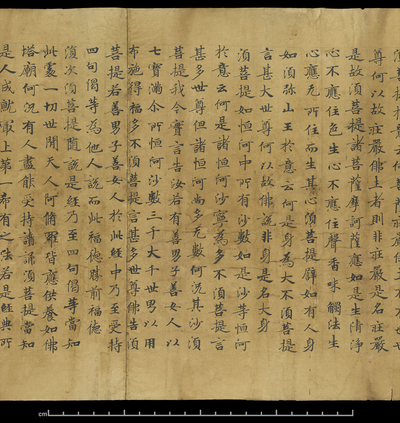 尊何以故莊嚴佛土者則非莊嚴是名莊嚴
是故須菩提諸菩薩摩訶薩應如是生清淨
心不應住色生心不應住聲香味觸法生
心應无所住而生其心須菩提辟如有人身
如須弥山王於意云何是身為大不須菩提
言甚大世尊何以故佛說非身是名大身
須菩提如恒河中所有沙數如是沙等恒河
於意云何是諸恒河沙寧為多不須菩提言
甚多世尊但諸恒河尚多无數何況其沙須
菩提我今實言告汝若有善男子善女人以
七寶滿尒所恒河沙數三千大千世界以用
布施得福多不須菩提言甚多世尊佛告須
菩提若善男子善女人於此經中乃至受持
四句偈等為他人說而此福德勝前福德
復次須菩提隨說是經乃至四句偈等當知
此處一切世間天人阿脩羅皆應供養如佛
塔廟何況有人盡能受持讀誦須菩提當知
是人成就最上第一希有之法若是經典所
cm